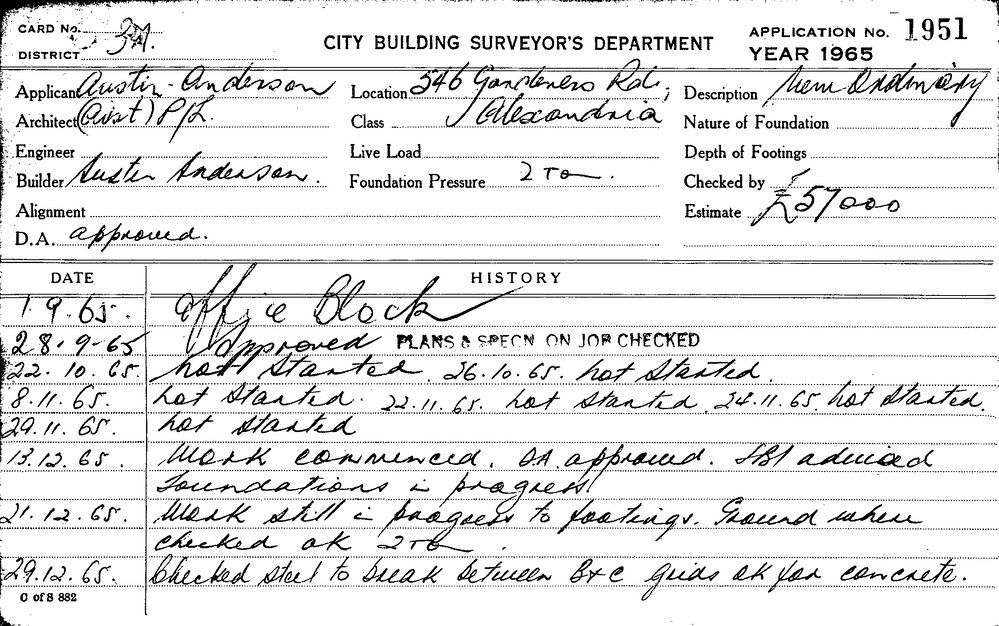 CARD No. 3M.
DISTRICT
CITY BUILDING SURVEYOR'S DEPARTMENT
APPLICATION No. 1951
YEAR 1965
Applicant Austin-Anderson
Location 546 Gardeners Rd.,
Description New Ordinary
Architect (Aust) P/L.
Class Alexandria
Nature of Foundation
Engineer
Live Load
Depth of Footings
Builder Austin Anderson.
Foundation Pressure 2 Ton.
Checked by
Alignment
Estimate £57000
D.A. approved.
DATE HISTORY
1.9.65. Office Block
28.9-65 Approved PLANS & SPECN ON JOB CHECKED
22.10.65. not started. 26.10.65. not started.
8.11.65. not started. 22.11.65. not started. 24.11.65. not started.
29.11.65. not started
13.12.65. Work commenced. DA. approved. advised
Foundations in progress.
21.12.65. Work still in progress to footings. Ground where
checked ok 2 Ton.
29.12.65. Checked steel to break between B+C grids ok for concrete.
C of S 882